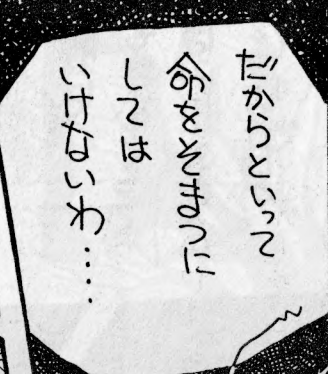 だからといって
命をそまつに
しては
いけないわ・・・・